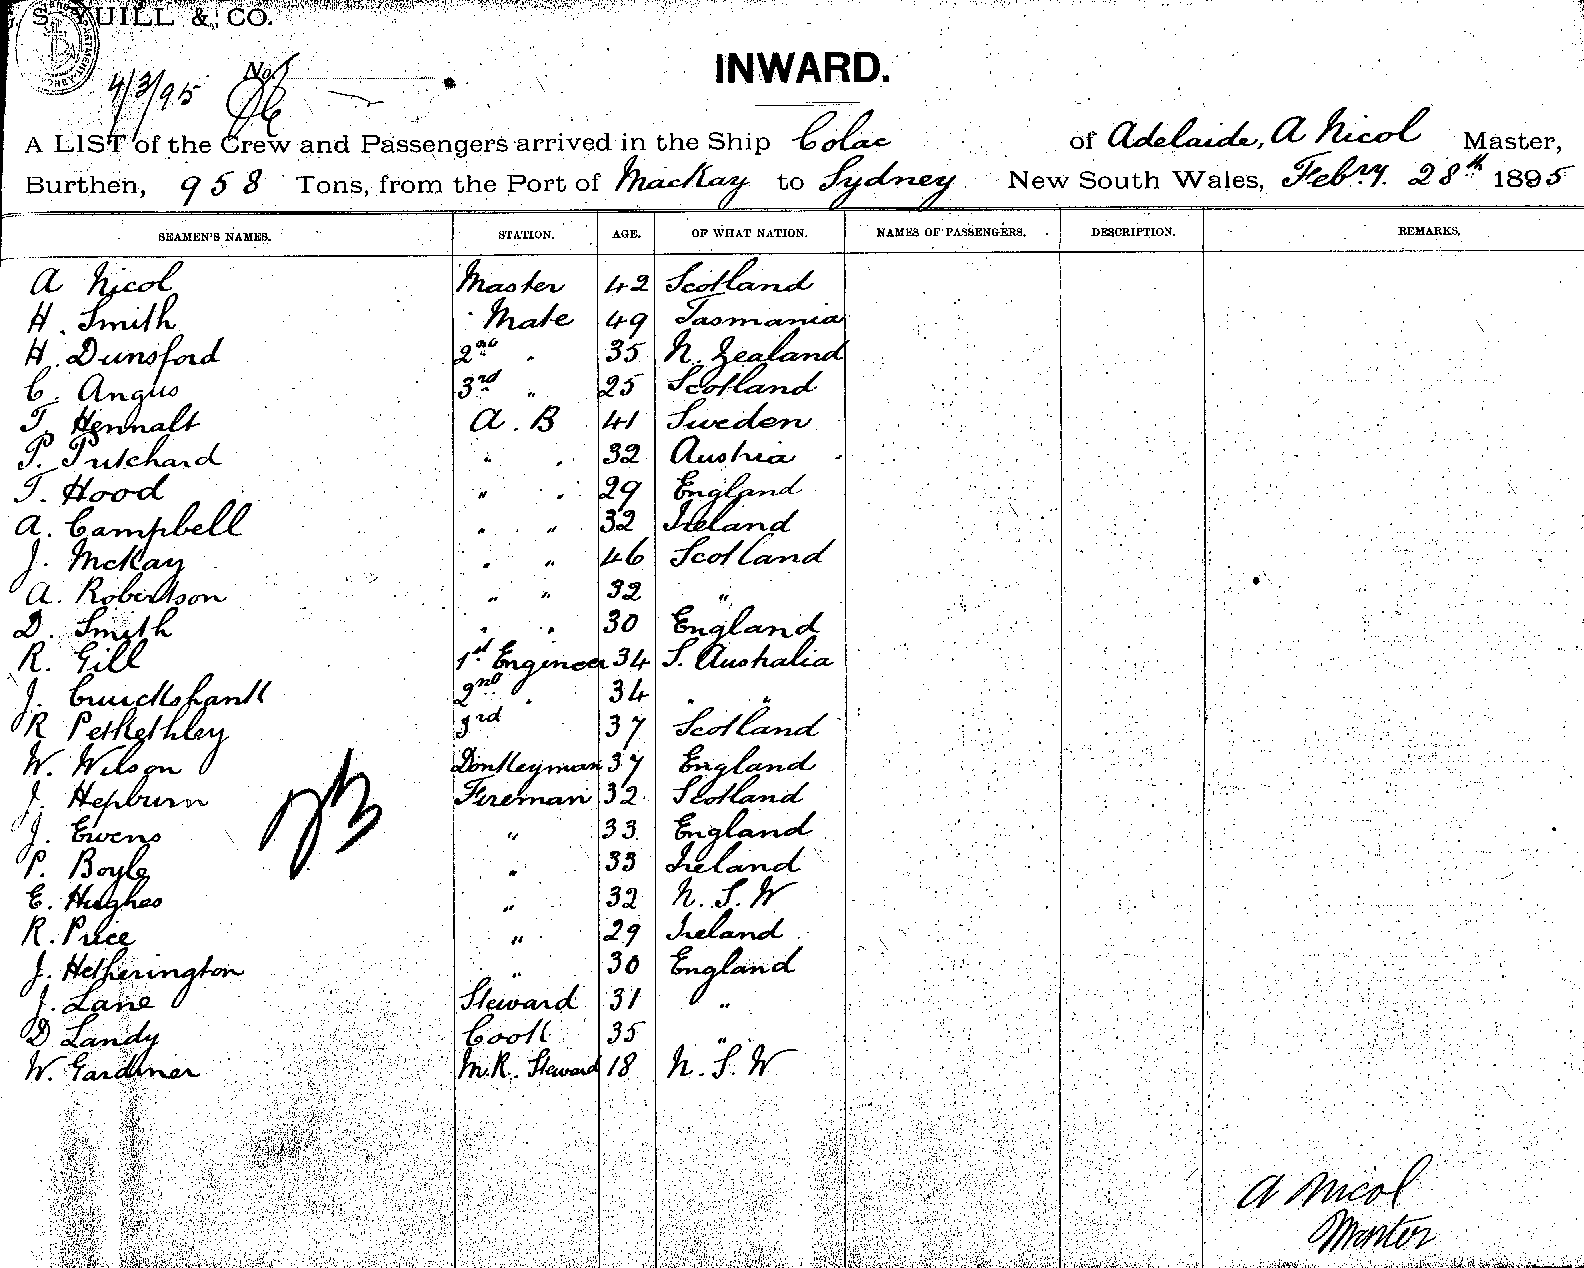 S. YUILL & CO.
4/3/95 No.
INWARD.
A LIST of the Crew and Passengers arrived in the Ship Colac of Adelaide, A Nicol Master,
Burthen, 958 Tons, from the Port of Mackay to Sydney New South Wales, Feby. 28th 1895
SEAMEN'S NAMES. STATION. AGE. OF WHAT NATION. NAMES OF PASSENGERS. DESCRIPTION. REMARKS.
A Nicol Master 42 Scotland
H. Smith Mate 49 Tasmania
H. Dunsford 2nd " 35 N. Zealand
C. Angus 3rd " 25 Scotland
T. Hennalt A. B 41 Sweden
P. Pritchard " " 32 Austria
T. Hood " " 29 England
A. Campbell " " 32 Ireland
J. McKay " " 46 Scotland
A. Robertson " " 32 "
D. Smith " " 30 England
R. Gill 1st Engineer 34 S. Australia
J. Cruickshank 2nd " 34 " "
R Petkethley 3rd 37 Scotland
W. Wilson Donkeyman 37 England
J. Hepburn Fireman 32 Scotland
J. Ewens " 33 England
P. Boyle " 33 Ireland
E. Hughes " 32 N. S. W
R. Price " 29 Ireland
J. Hetherington " 30 England
J. Lane Steward 31 "
D Landy Cook 35 "
W. Gardiner M.R. Steward 18 N. S. W
A Nicol
Master